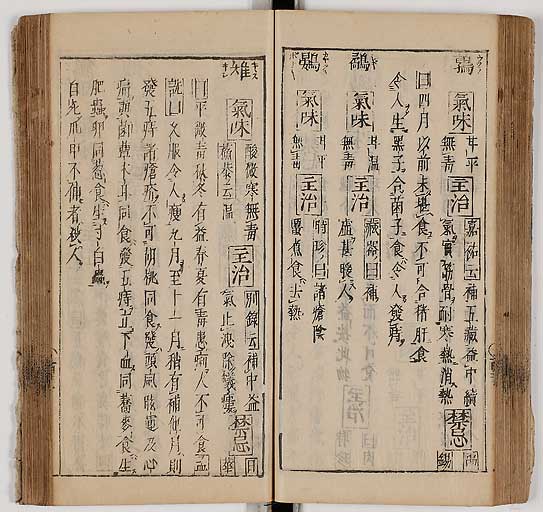 鶉 氣味 甘平無毒 主治 嘉祐云補五藏益中續氣實筋骨耐寒熱消熱 禁忌 禹錫
曰四月以前未堪食不可合猪肝食
令人生黑子合菌子食令人發痔
鷸 氣味 甘温 主治 藏器曰補虚甚暖人
鷃 氣味 甘平無毒 主治 時珍曰諸瘡陰䘌煮食去熱
雉 氣味 酸微寒無毒 蕭炳云温 主治 別録云補中益氣止洩除蟻瘻 禁忌 日華
曰平微毒秋冬有益春夏有毒患痢人不可食孟
詵曰久服令人瘦九月至十一月稍有補他月則
發五痔諸瘡疥不可胡桃同食發頭風眩暈及心
痛與菌蕈木耳同食發五痔立下血同蕎麥食生
肥蟲卵同葱食生寸白蟲
自死爪甲不伸者殺人